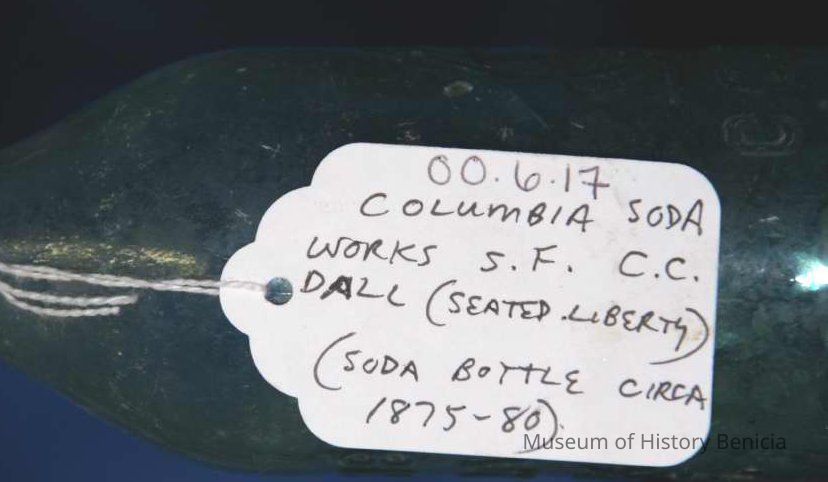 00.6.17
COLUMBIA SODA
WORKS S.F. C.C.
DALL (SEATED LIBERTY)
(SODA BOTTLE CIRCA
1875-80).
Museum of History Benicia